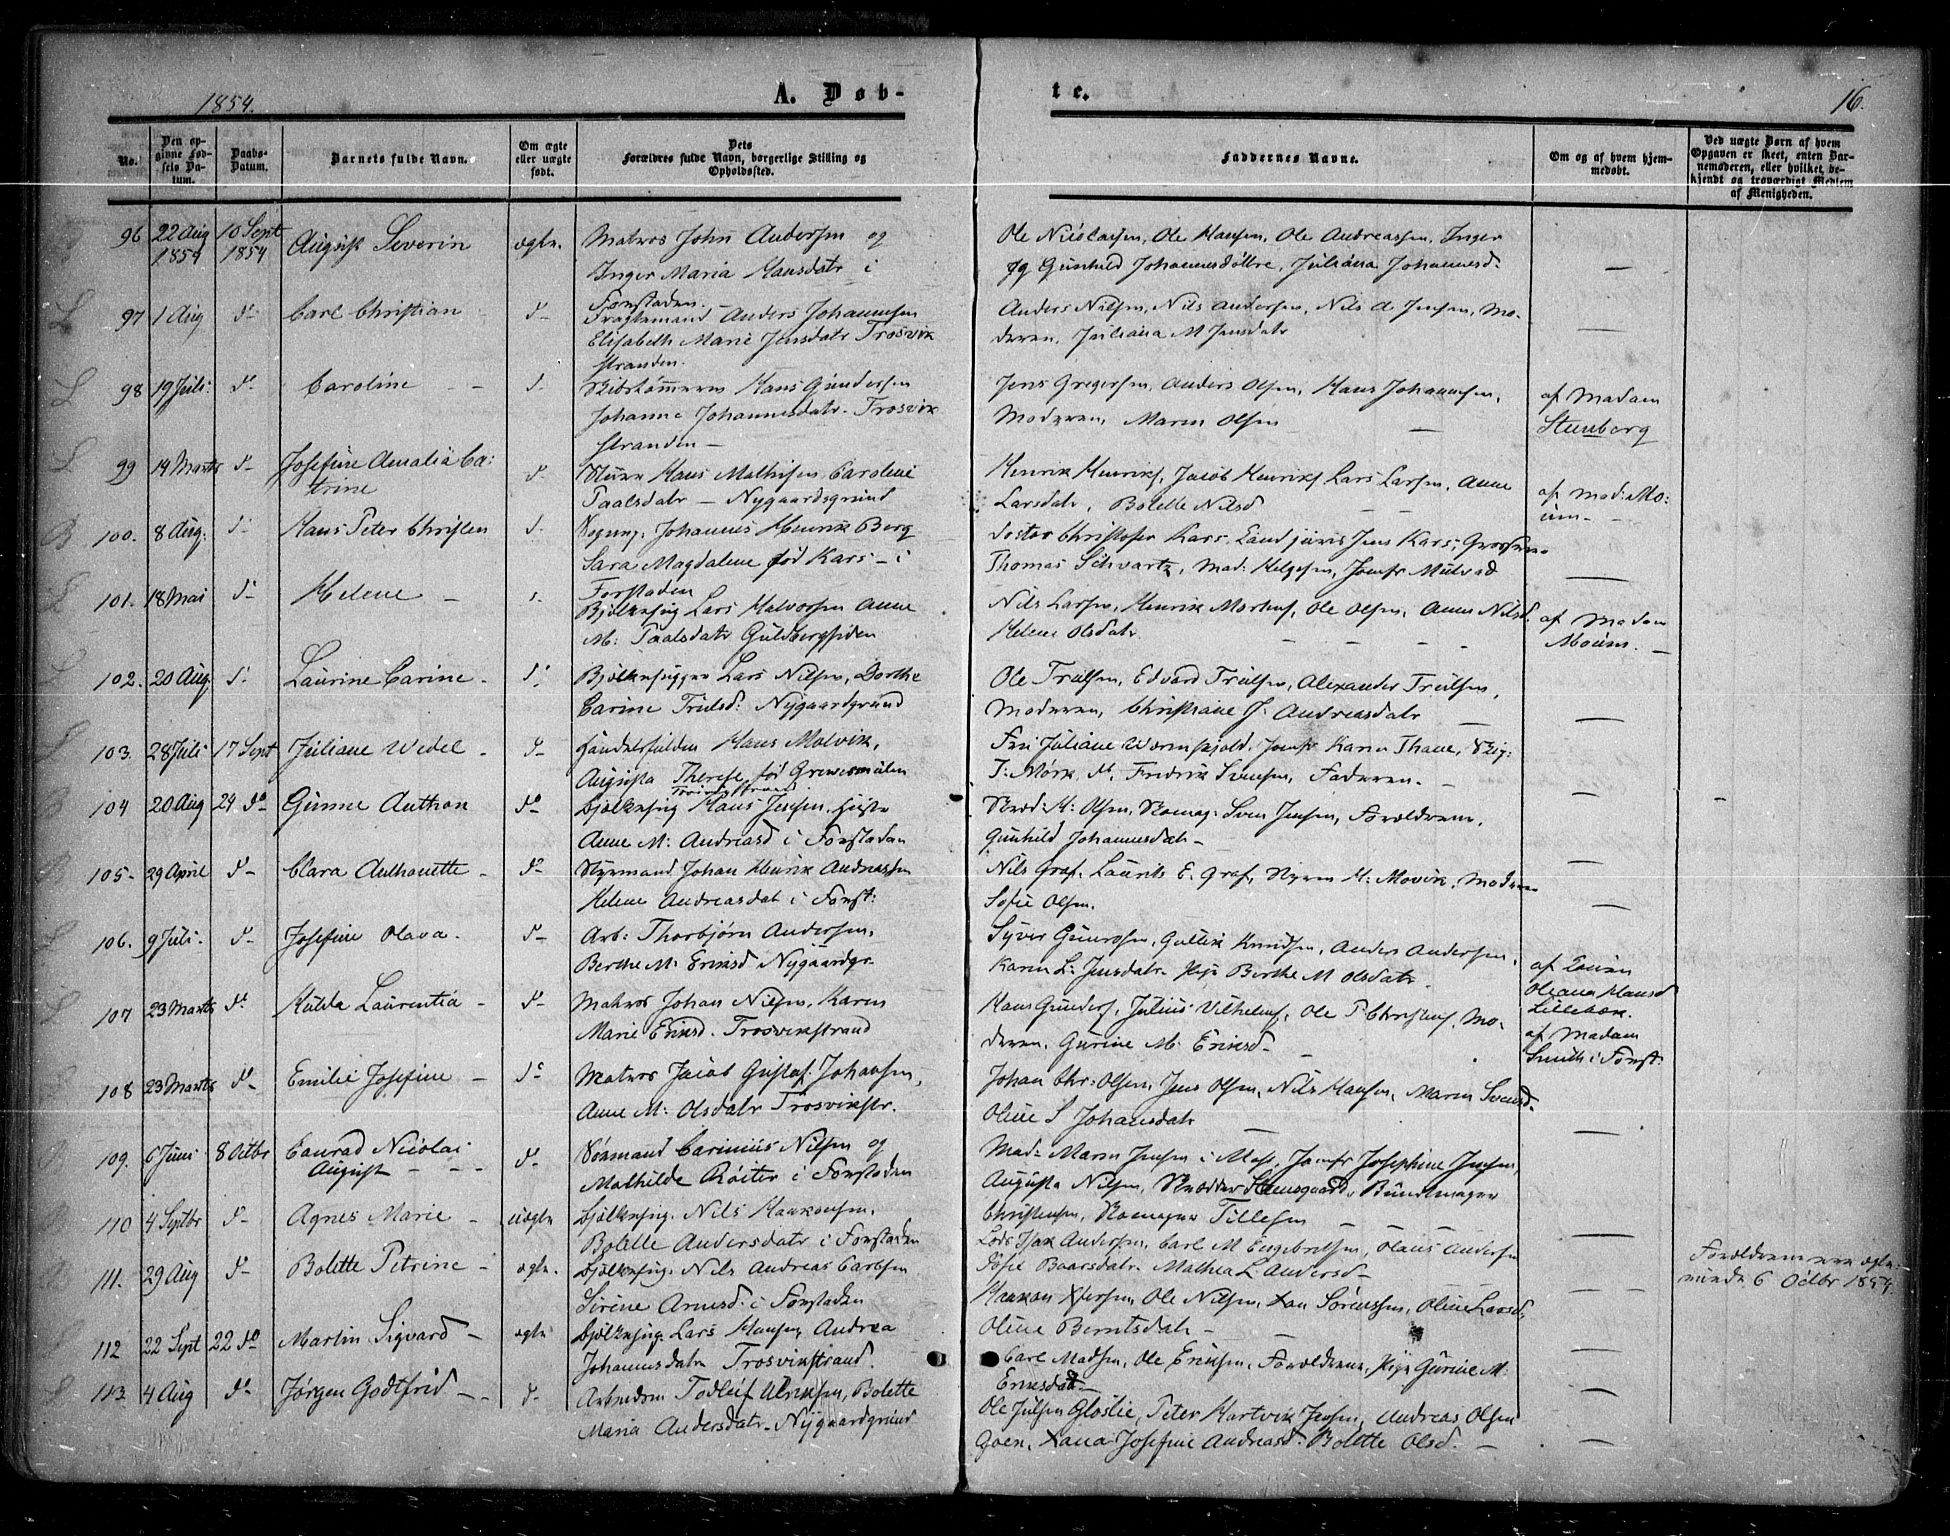 1854.
A. Døb-
te.
16.
No.
Den op-
givne Fød-
sels Da-
tum.
Daabs-
Datum.
Barnets fulde Navn.
Om ægte
eller uægte
født.
Dets
Forældres fulde Navn, borgerlige Stilling og
Opholdssted.
Faddernes Navne.
Om og af hvem hjem-
medøbt.
Ved uægte Børn af hvem
Opgaven er skeet, enten Bar-
nemoderen, eller hvilket be-
kjendt og troværdigt Medlem
af Menigheden.
96 22 Aug 1854 10 Sept 1854 August Severin ægte.
Matros John Andersen og
Inger Maria Hansdatr i
Forstaden.
Ole Nicolaisen, Ole Hansen, Ole Andreassen, Inger
og Gunhild Johannesdøttre, Juliana Johannesd.
97 1 Aug do Carl Christian d-
Fragtemand Anders Johannesen
Elisabeth Marie Jensdatr Trosvik
stranden.
Anders Nilsen, Nils Andersen, Nils A Jensen, Mo-
deren, Juliana M Jensdatr
98 19 Juli do Caroline d-
Skibstømmerm Hans Gundersen
Johanne Johannesdatr. Trosvik
stranden -
Jens Gregersen, Anders Olsen, Hans Johannesen,
Moderen, Maren Olsen
af Madam
Steenberg
99 14 Marts d- Josefine Amalia Ca-
trine d-
Hans Mathisen Caroline
Paalsdatr - Nygaardsgrund
Henrik Henriks, Jacob Henriks, Lars Larsen, Anne
Larsdatr, Bolette Nilsd
af Mad: Mo-
um-
100. 8 Aug. d- Hans Peter Christen d-
Johannes Henrik Berg
Sara Magdalene fød Kars - i
Forstaden
Doctor Christofer Kars, Jens Kars,
Thomas Schvartz, Mad: Helgesen, Jomfr Mulvad
101. 18 Mai d- Helene
Bjelkehug Lars Halvorsen Anne
M: Paalsdatr Guldbergsiden
Nils Larsen, Henrik Ole Olsen, Anne Nilsd.
Helene Olsdatr.
af Madam
Moum.
102. 20 Aug d- Laurine Carine d-
Bjelkehugger Lars Nilsen, Dorthe
Carine Trulsd: Nygaardgrund
Ole Trulsen, Edvard Trulsen, Alexander Trulsen,
Moderen, Christiane J. Andreasdatr
103. 28 Juli 17 Sept Juliane Wedel d-
Hans Malvik,
Augusta Therese fød Grewesmülen
Trosvikstrand
Fru Juliane Wormskjold, Jomfr Karen Thane,
T: Mørk, Fredrik Svensen, Faderen.
104 20 Aug 24 do Gunne Anthon do
bjelkehug Hans Jensen,
Anne M: Andreasd i Forstaden
M: Olsen, Skomag: Sven Jensen, Forældrene,
Gunhild Johannesdatr
105 29 April d- Clara Anthonette do
Styrmand Johan Henrik Andreassen
Helene Andreasdat i Forst:
Nils Graf, Laurits E. Graf, Styrm H: Movik, Moderen
Sofie Olsen.
106. 9 Juli. d- Josefine Olava. d-
Arb: Thorbjørn Andersen,
Berthe M: Eriksd Nygaardgr.
Syver Gullik Knudsen, Anders Andersen,
Karen L: Jensdatr Pige Berthe M Olsdatr.
af
Oleana Hansd
Lillebæk.
107 23 Marts do Hulda Laurentia d-
Matros Johan Nilsen, Karen
Marie Eriksd. Trosvikstrand
Hans Gunders, Julius Vilhelms, Ole P Christens, Mo-
deren, Gurine M: Eriksd-
af Madam
Smith i Forst:
108 23 Marts do Emilie Josefine do
Matros Jacob Gustaf Johansen,
Anne M: Olsdatr Trosvikstr.
Johan Chr: Olsen, Jens Olsen, Nils Hansen, Maren Svensd-
Oline S Johansdatr
109. 6 Juni 8 Octbr Conrad Nicolai
August d-
Sømand Carinius Nilsen og
Mathilde Røiter i Forstaden
Mad: Maren Jensen i Moss, Jomfr Josephine Jensen,
Augusta Nilsen, Skrædder Bundtmager
Christensen, Skomager Tillesen
110 4 Septbr d- Agnes Marie uægte
bjelkehug. Nils Haakonsen,
Bolette Andersdatr i Forstaden
Lods Isak Andersen, Carl M Engebretsen, Olaus Andersen
Sofie Baarsdatr Mathea L. Andersd-
Forældrene
6 Octbr 1854
111. 29 Aug d- Bolette Petrine ægte.
bjelkehug. Nils Andreas Carlsen
Sirene Arnesd: i Forstaden
Haakon Ole Nilsen, Sørensen, Oline Larsd,
Oline Berntsdatr
112 22 Sept 22 do Martin Sigvard ægte
bjelkehug. Lars Hansen, Andrea
Johannesdatr Trosvikstrand.
Carl Madsen, Ole Eriksen, Forældrene, Pige Gurine M.
Eriksdatr
113 4 Aug do Jørgen Godtfrid d-
Arbeideren Todleif Ulriksen, Bolette
Maria Andersdatr. Nygaardgrund
Ole Julsen Gloslie, Peter Hartvik Jensen, Andreas Olsen
Josefine Andreasd. Bolette Olsd.